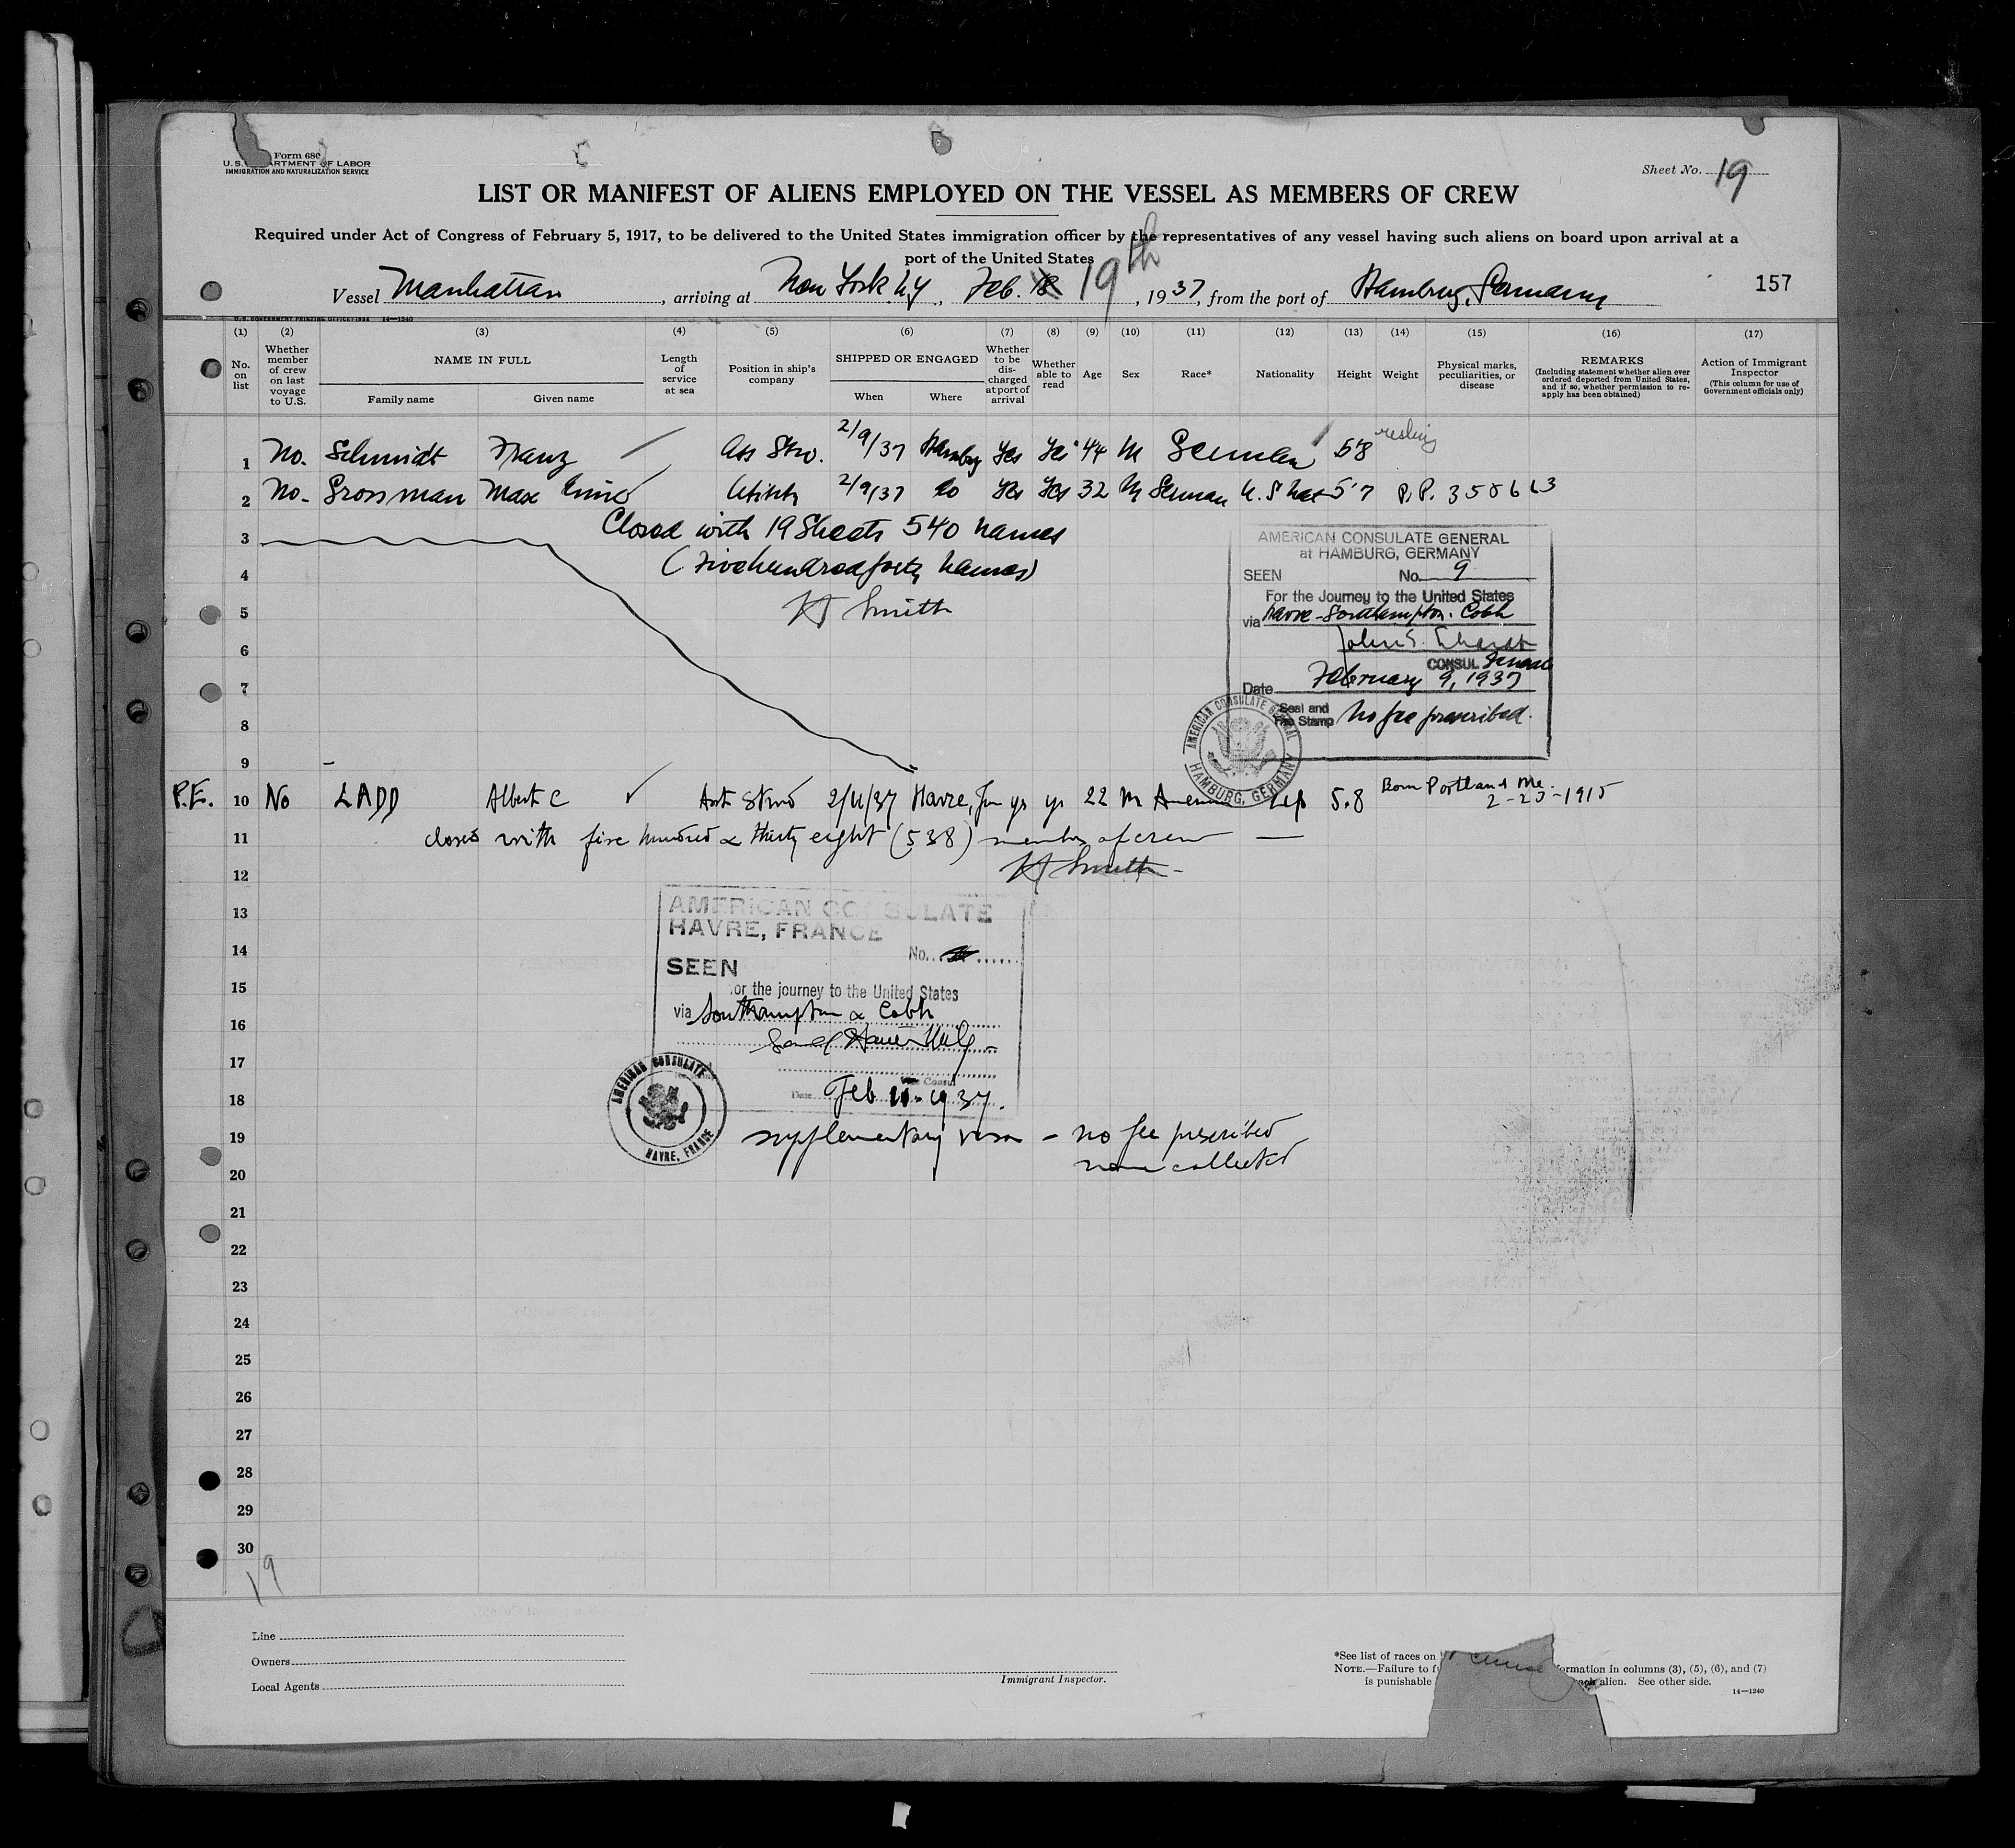 Form 680
U. S. DEPARTMENT OF LABOR
IMMIGRATION AND NATURALIZATION SERVICE
Sheet No. 19
LIST OR MANIFEST OF ALIENS EMPLOYED ON THE VESSEL AS MEMBERS OF CREW
Required under Act of Congress of February 5, 1917, to be delivered to the United States immigration officer by the representatives of any vessel having such aliens on board upon arrival at a
port of the United States
Vessel Manhattan, arriving at New York N.Y., Feb. 18 19th, 1937, from the port of Hamburg, Germany
157
U. S. GOVERNMENT PRINTING OFFICE: 1934 14—1240
(1) (2) (3) (4) (5) (6) (7) (8) (9) (10) (11) (12) (13) (14) (15) (16) (17)
No. on list
Whether member of crew on last voyage to U.S.
NAME IN FULL
Family name Given name
Length of service at sea
Position in ship's company
SHIPPED OR ENGAGED
When Where
Whether to be discharged at port of arrival
Whether able to read
Age
Sex
Race*
Nationality
Height
Weight
Physical marks, peculiarities, or disease
REMARKS
(Including statement whether alien ever ordered deported from United States, and if so, whether permission to reapply has been obtained)
Action of Immigrant Inspector
(This column for use of Government officials only)
1 No. Schmidt Franz Ass Stwd. 2/9/37 Hamburg Yes Yes 44 M German 5'8
2 No. Grossman Max Utility 2/9/37 do Yes Yes 32 M German U.S. Nat 5'7 P.P. 358663
3 Closed with 19 Sheets 540 names
4 (Fivehundredforty names)
5 H Smith
AMERICAN CONSULATE GENERAL
at HAMBURG, GERMANY
SEEN No. 9
For the Journey to the United States
via Havre-Southampton. Cobh
CONSUL General
Date February 9, 1937
Seal and
Fee Stamp No fee prescribed.
AMERICAN CONSULATE GENERAL
HAMBURG, GERMANY
6
7
8
9
P.E. 10 No LADD Albert C Asst Stwd 2/11/37 Havre, Fr. ys ys 22 M American 5.8 Born Portland Me.
2-23-1915
11 closed with five hundred & thirty eight (538) members of crew
12 H Smith
13
14
15
16
17
18
19
20
21
22
23
24
25
26
27
28
29
30
AMERICAN CONSULATE
HAVRE, FRANCE
No.
SEEN
for the journey to the United States
via Southampton & Cobh
Vice Consul
Date Feb 11-1937.
AMERICAN CONSULATE
HAVRE, FRANCE
supplementary visa - no fee prescribed
none collected
19
Line
Owners
Local Agents
Immigrant Inspector.
*See list of races on
NOTE.—Failure to f ormation in columns (3), (5), (6), and (7)
is punishable each alien. See other side.
14—1240